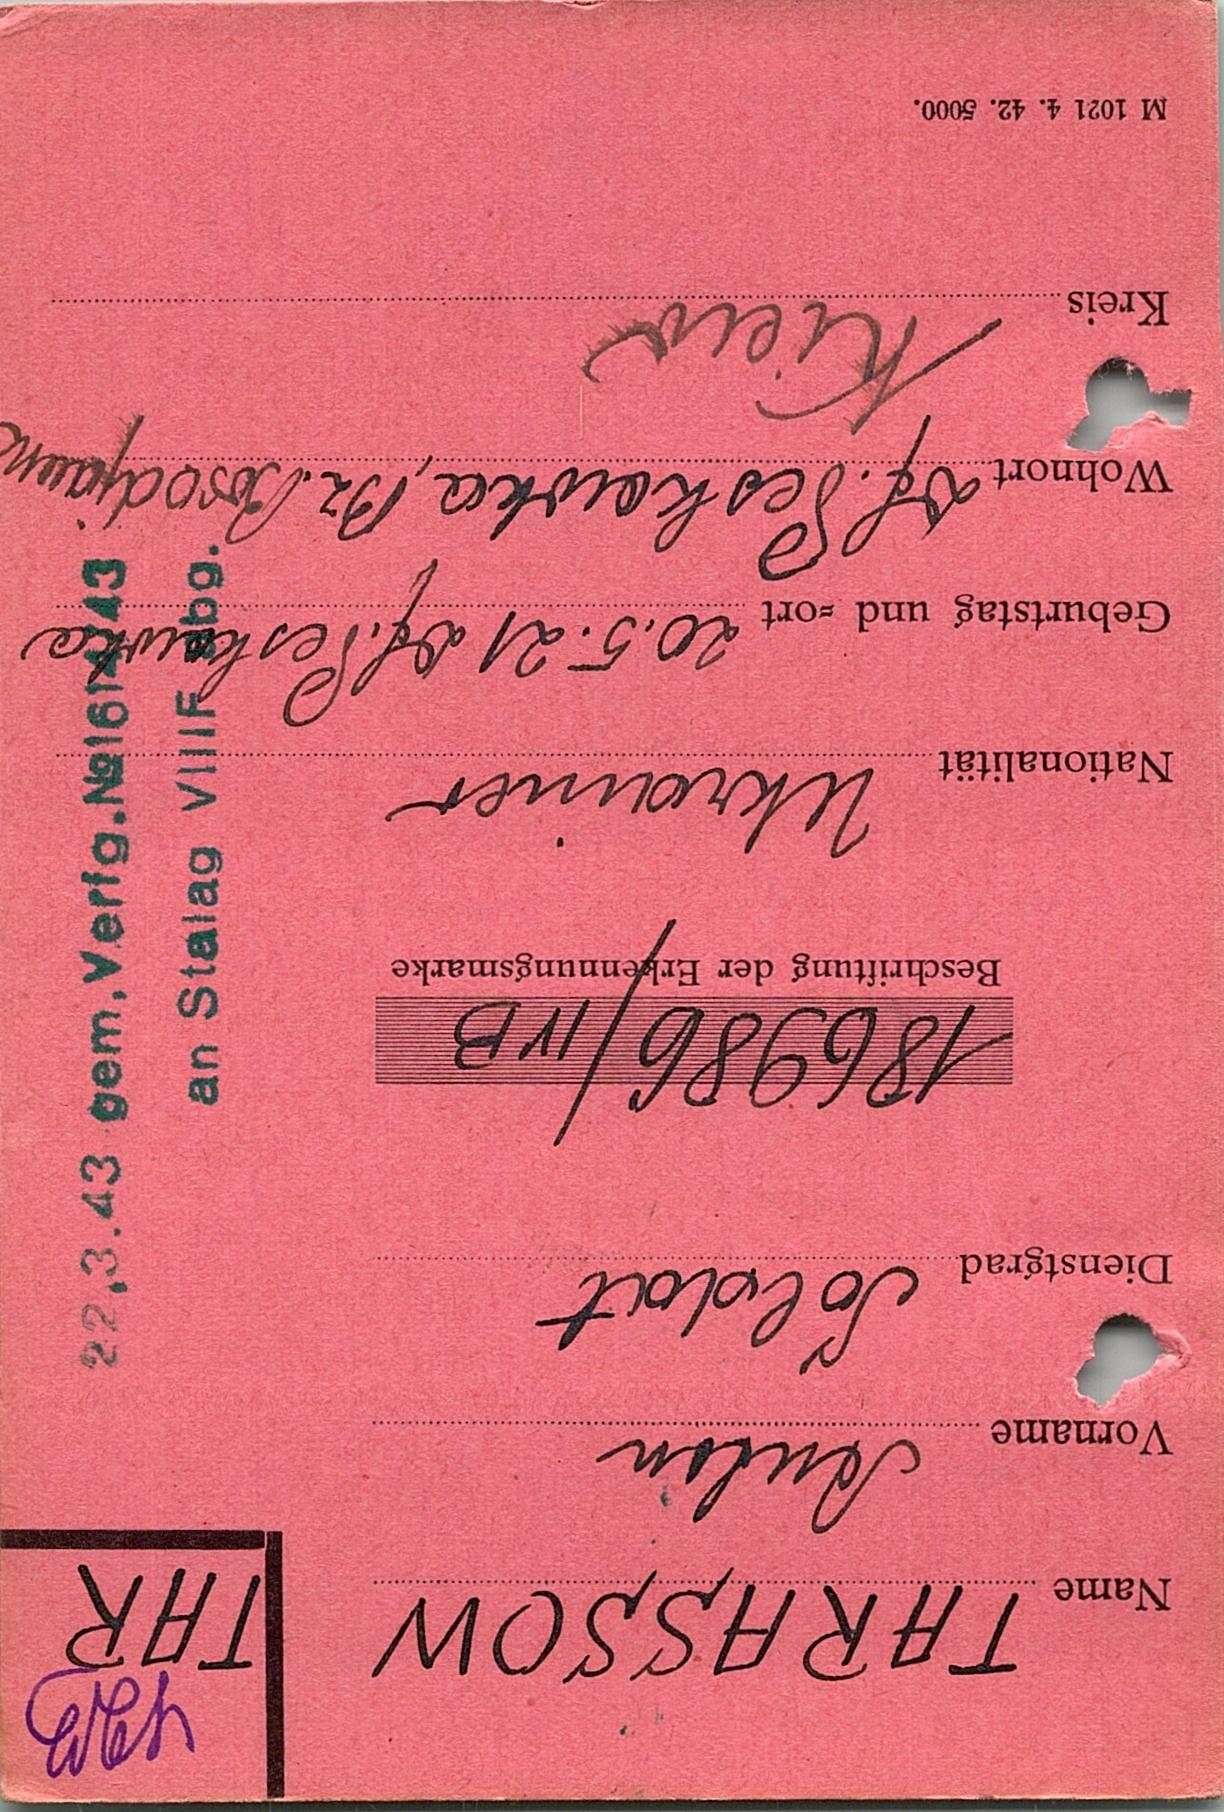 TAR
Name TARASSOW
Vorname
Dienstgrad Soldat
186986/IVB
Beschriftung der Erkennungsmarke
Nationalität Ukrainer
Geburtstag und =ort 20.5.21 Df. Peskawka
Wohnort Df. Peskawka, Bz.
Kreis Kiew
M 1021 4. 42. 5000.
22.3.43 gem. Verfg. №
an Stalag VIIIF abg.